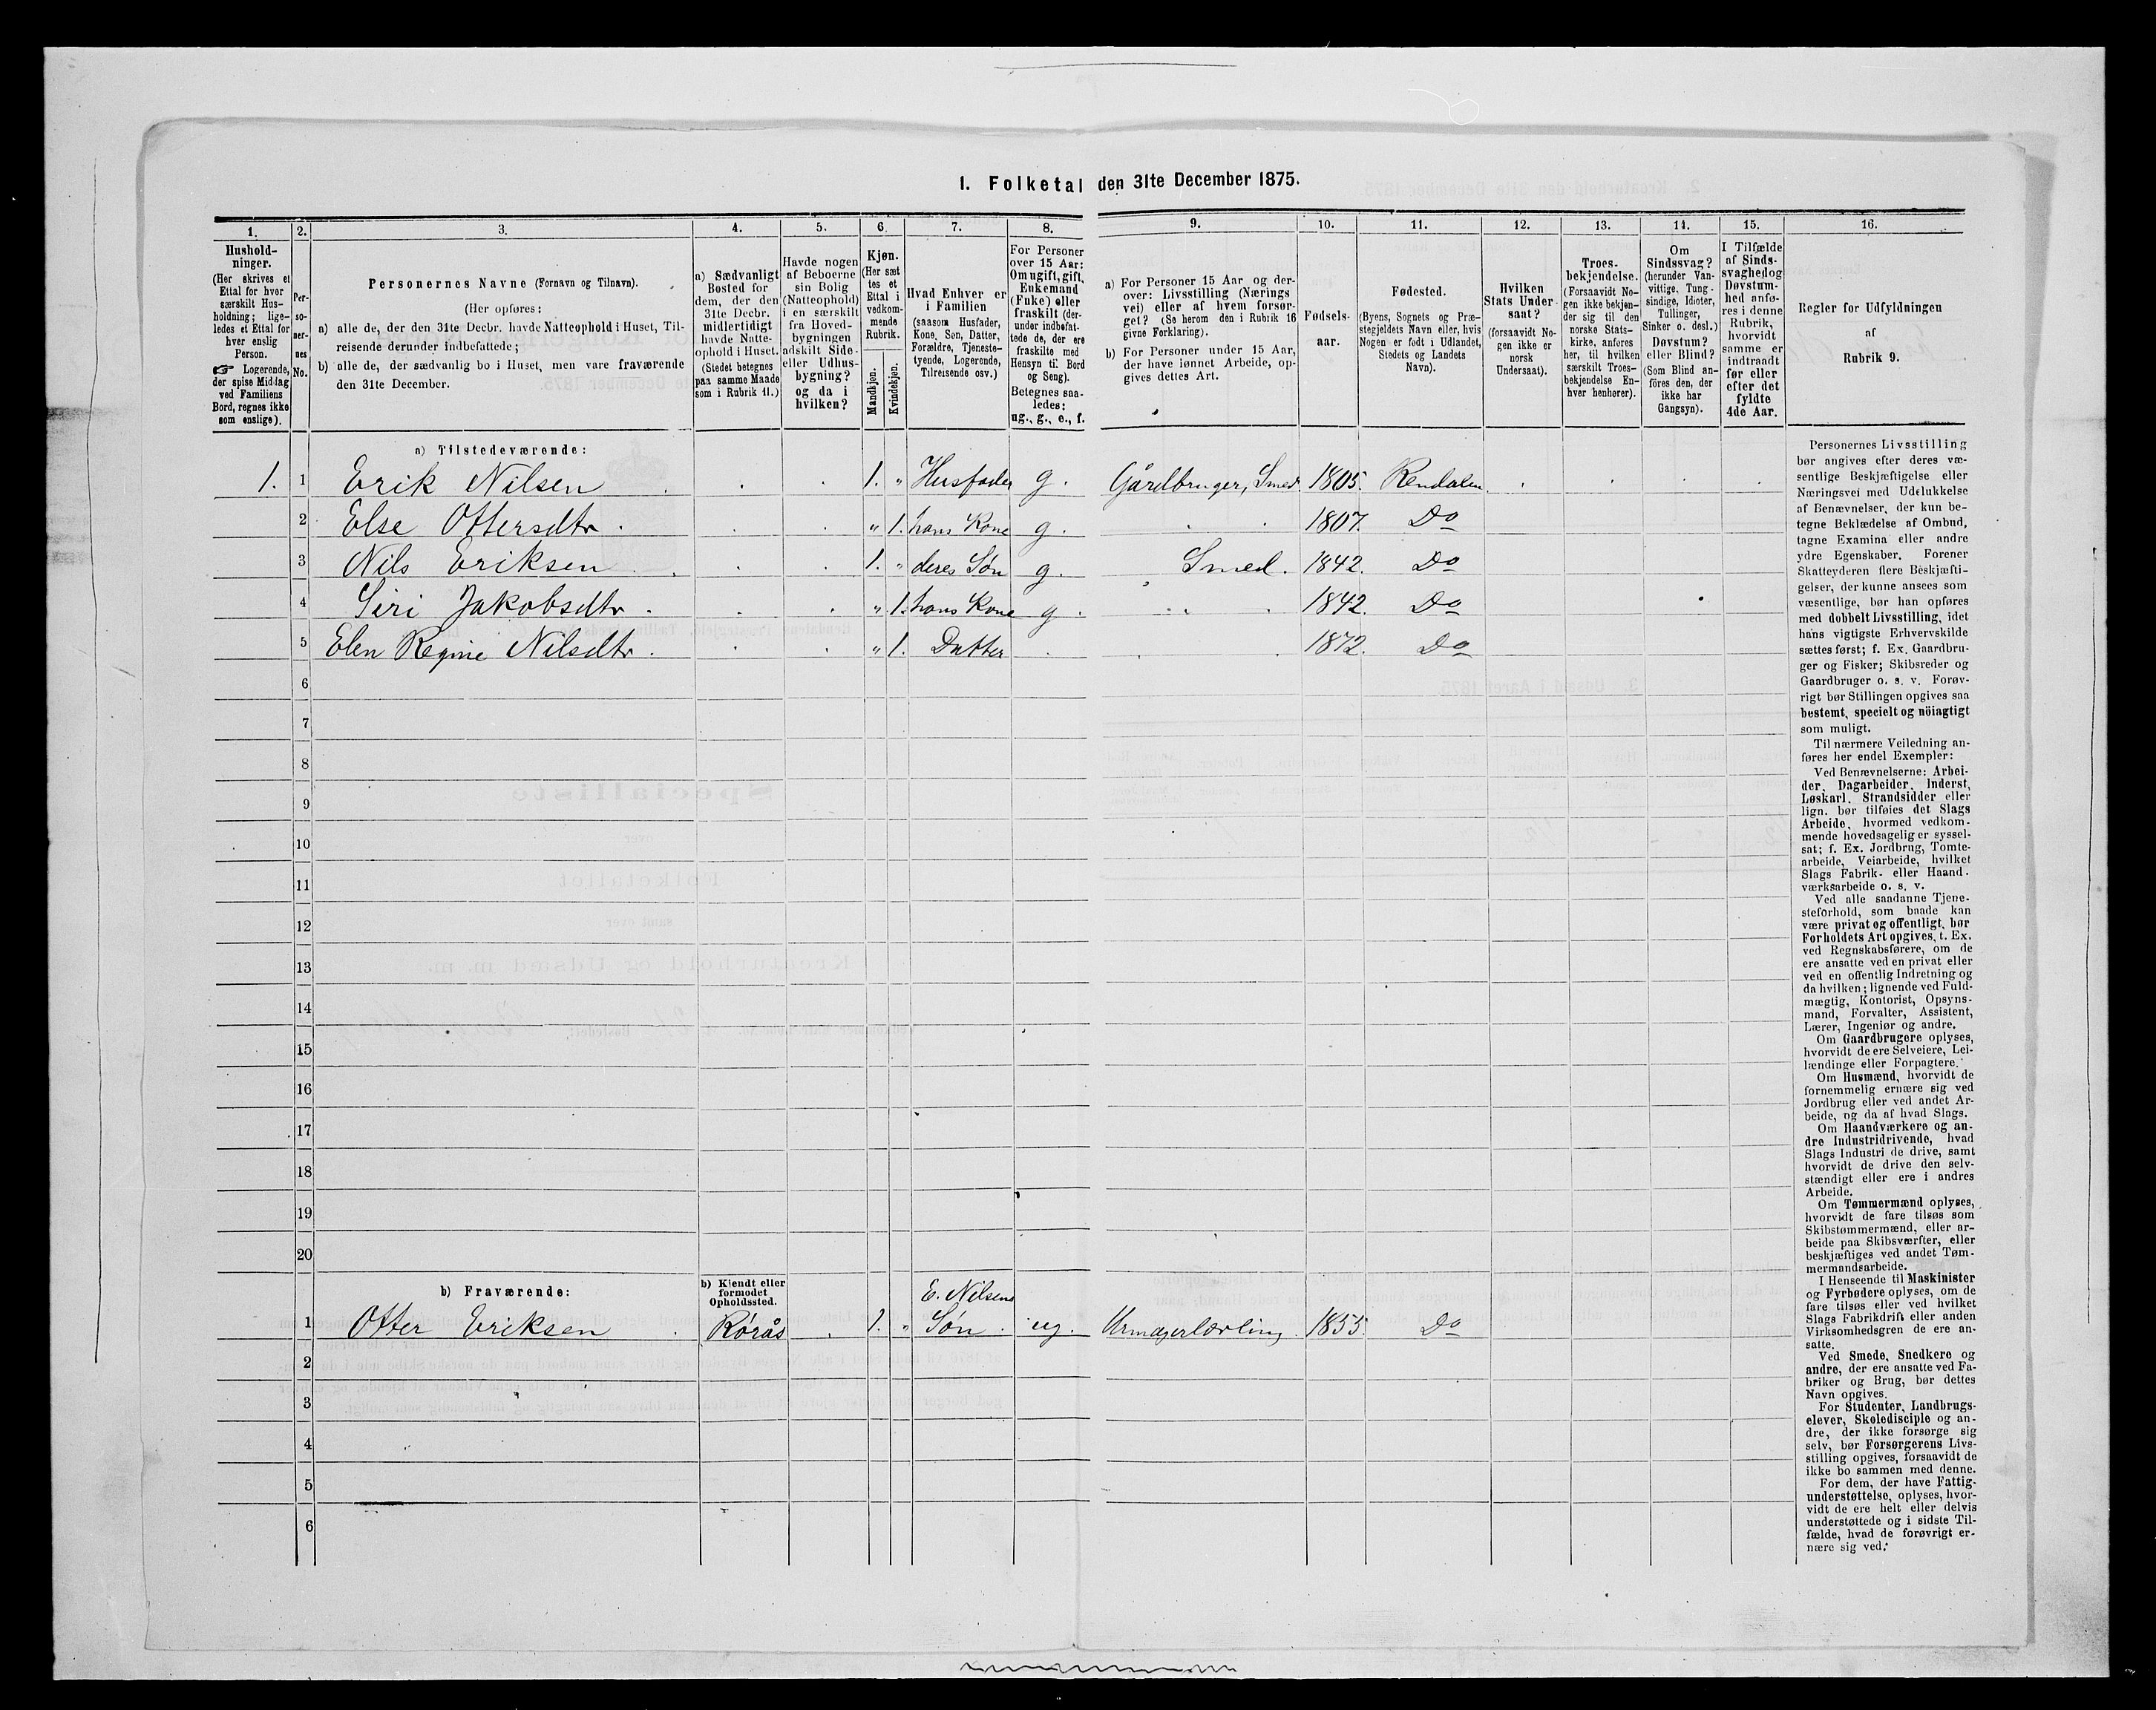 1. Folketal den 31te December 1875.
1.
2.
3.
4.
5.
6.
7.
8.
9.
10.
11.
12.
13.
14.
15.
16.
Hushold-
ninger.
(Her skrives et
Ettal for hver
særskilt Hus-
holdning; lige-
ledes et Ettal for
hver enslig
Person.
☞ Logerende,
der spise Middag
ved Familiens
Bord, regnes ikke
som enslige).
Per-
so-
ner-
nes
No.
Personernes Navne (Fornavn og Tilnavn).
(Her opføres:
a) alle de, der den 31te Decbr. havde Natteophold i Huset, Til-
reisende derunder indbefattede;
b) alle de, der sædvanlig bo i Huset, men vare fraværende
den 31te December.
a) Sædvanligt
Bosted for
dem, der den
31te Decbr.
midlertidigt
havde Natte-
ophold i Huset.
(Stedet betegnes
paa samme Maade
som i Rubrik 11.)
Havde nogen
af Beboerne
sin Bolig
(Natteophold)
i en særskilt
fra Hoved-
bygningen
adskilt Side-
eller Udhus-
bygning?
og da i
hvilken?
Kjøn.
(Her sæt
tes et
Ettal i
vedkom-
mende
Rubrik.
Mandkjøn.
Kvindekjøn.
Hvad Enhver er
i Familien
(saasom Husfader,
Kone, Søn, Datter,
Forældre, Tjeneste-
tyende, Logerende,
Tilreisende osv.)
For Personer
over 15 Aar:
Om ugift, gift,
Enkemand
(Enke) eller
fraskilt (der-
under indbefat-
tede de, der ere
fraskilte med
Hensyn til Bord
og Seng).
Betegnes saa-
ledes:
ug., g., e., f.
a) For Personer 15 Aar og der-
over: Livsstilling (Nærings
vei) eller af hvem forsør-
get? (Se herom den i Rubrik 16
givne Forklaring).
b) For Personer under 15 Aar,
der have lønnet Arbeide, op-
gives dettes Art.
Fødsels-
aar.
Fødested.
(Byens, Sognets og Præ-
stegjeldets Navn eller, hvis
Nogen er født i Udlandet,
Stedets og Landets
Navn).
Hvilken
Stats Under-
saat?
(forsaavidt No-
gen ikke er
norsk
Undersaat).
Troes-
bekjendelse.
(Forsaavidt No-
gen ikke bekjen-
der sig til den
norske Stats-
kirke, anføres
her, til hvilken
særskilt Troes-
bekjendelse En-
hver henhører).
Om
Sindssvag?
(herunder Van-
vittige, Tung-
sindige, Idioter,
Tullinger,
Sinker o. desl.)
Døvstum?
eller Blind?
(Som Blind an-
föres den, der
ikke har
Gangsyn).
I Tilfælde
af Sinds-
svaghed og
Døvstum-
hed anfø-
res i denne
Rubrik,
hvorvidt
samme er
indtraadt
før eller
efter det
fyldte
4de Aar.
Regler for Udfyldningen
af
Rubrik 9.
a) Tilstedeværende:
1. 1 Erik Nilsen 1. „ Husfader g. Gårdbruger, Smed. 1805. Rendalen
2 Else Ottersdtr „ 1. hans Kone g. 1807. Do
3 Nils Eriksen 1. „ deres Søn g. Smed. 1842. Do
4 Siri Jakobsdtr „ 1. hans Kone g. 1842. Do
5 Elen Regine Nilsdtr „ 1. Datter 1872. Do
6
7
8
9
10
11
12
13
14
15
16
17
18
19
20
b) Fraværende:
b) Kjendt eller
formodet
Opholdssted.
E. Nilsens
1 Otter Eriksen Rörås 1. „ Søn ug. Urmagerlærling 1855. Do
2
3
4
5
6
Personernes Livsstilling
bør angives efter deres væ-
sentlige Beskjæftigelse eller
Næringsvei med Udelukkelse
af Benævnelser, der kun be-
tegne Beklædelse af Ombud,
tagne Examina eller andre
ydre Egenskaber. Forener
Skatteyderen flere Beskjæfti-
gelser, der kunne ansees som
væsentlige, bør han opføres
med dobbelt Livsstilling, idet
hans vigtigste Erhvervskilde
sættes først; f. Ex. Gaardbru-
ger og Fisker; Skibsreder og
Gaardbruger o. s. v. Forøv-
rigt bør Stillingen opgives saa
bestemt, specielt og nöiagtigt
som muligt.
Til nærmere Veiledning an-
føres her endel Exempler:
Ved Benævnelserne: Arbei-
der, Dagarbeider, Inderst,
Løskarl, Strandsidder eller
lign. bør tilføies det Slags
Arbeide, hvormed vedkom-
mende hovedsagelig er syssel-
sat; f. Ex. Jordbrug, Tomte-
arbeide, Veiarbeide, hvilket
Slags Fabrik- eller Haand-
værksarbeide o. s. v.
Ved alle saadanne Tjene-
steforhold, som baade kan
være privat og offentligt, bør
Forholdets Art opgives, t. Ex.
ved Regnskabsførere, om de
ere ansatte ved en privat eller
ved en offentlig Indretning og
da hvilken; lignende ved Fuld-
mægtig, Kontorist, Opsyns-
mand, Forvalter, Assistent,
Lærer, Ingeniør og andre.
Om Gaardbrugere oplyses,
hvorvidt de ere Selveiere, Lei-
lændinge eller Forpagtere.
Om Husmænd, hvorvidt de
fornemmelig ernære sig ved
Jordbrug eller ved andet Ar-
beide, og da af hvad Slags.
Om Haandværkere og an-
dre Industridrivende, hvad
Slags Industri de drive, samt
hvorvidt de drive den selv-
stændigt eller ere i andres
Arbeide.
Om Tømmermænd oplyses,
hvorvidt de fare tilsøs som
Skibstømmermænd, eller ar-
beide paa Skibsværfter, eller
beskjæftiges ved andet Tøm-
mermandsarbeide.
I Henseende til Maskinister
og Fyrbødere oplyses, om de
fare tilsøs eller ved hvilket
Slags Fabrikdrift eller anden
Virksomhedsgren de ere an-
satte.
Ved Smede, Snedkere og
andre, der ere ansatte ved Fa-
briker og Brug, bør dettes
Navn opgives.
For Studenter, Landbrugs-
elever, Skoledisciple og an-
dre, der ikke forsørge sig
selv, bør Forsørgerens Livs-
stilling opgives, forsaavidt de
ikke bo sammen med denne.
For dem, der have Fattig-
understøttelse, oplyses, hvor-
vidt de ere helt eller delvis
understøttede og i sidste Til-
fælde, hvad de forøvrigt er-
nære sig ved.